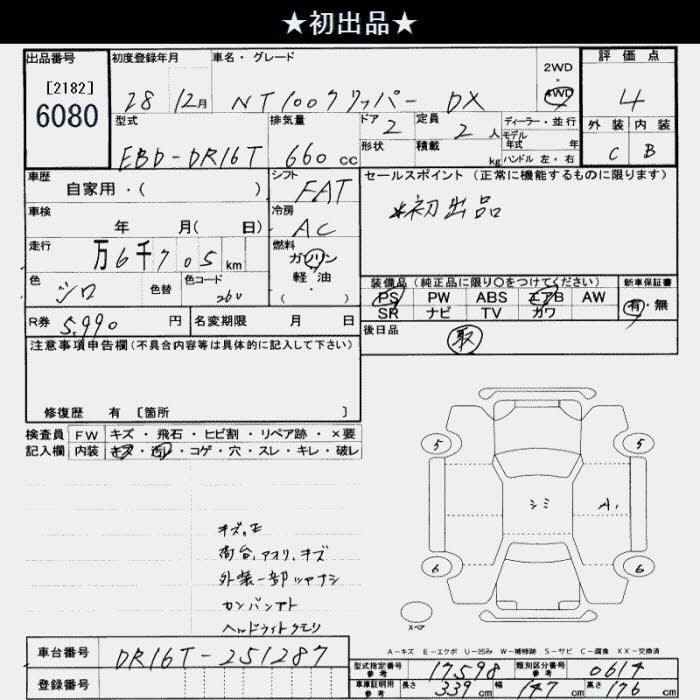 ★初出品★
出品番号 初度登録年月 車名・グレード 2WD・4WD 評価点
[2182]
6080 28 12月 NT100クリッパー DX 4
型式 排気量 ドア 定員 ディーラー・並行 外装 内装
EBD-DR16T 660cc 2 2人 モデル年式 年 C B
形状 積載 kg ハンドル 左・右
車歴 シフト セールスポイント (正常に機能するものに限ります)
自家用・( ) FAT
*初出品
車検 冷房
年 月( 日) AC
走行 燃料
万6千705km ガソリン・軽油・( )
色 色替 色コード 装備品 (純正品に限り○をつけてください) 新車保証書
シロ 260 PS PW ABS エアB AW 有・無
SR ナビ TV カワ
R券 5,990円 名変期限 月 日 後日品 取
注意事項申告欄(不具合内容等は具体的に記入して下さい)
修復歴 有 [箇所 ]
検査員 FW キズ・飛石・ヒビ割・リペア跡・×要
記入欄 内装 キズ・汚レ・コゲ・穴・スレ・キレ・破レ
5 5
シミ A1
6 6
キズ、
荷台、アオリ、キズ
外装一部ツヤナシ
カンバンアト
ヘッドライトクモリ
スペア
A-キズ E-エクボ U-凹み W-補修跡 S-サビ C-腐食 XX-交換済
車台番号 DR16T-251287
型式指定番号 参考 17598 類別区分番号 参考 0614
登録番号 車庫証明用 参考 長さ 339cm 幅 147cm 高さ 176cm